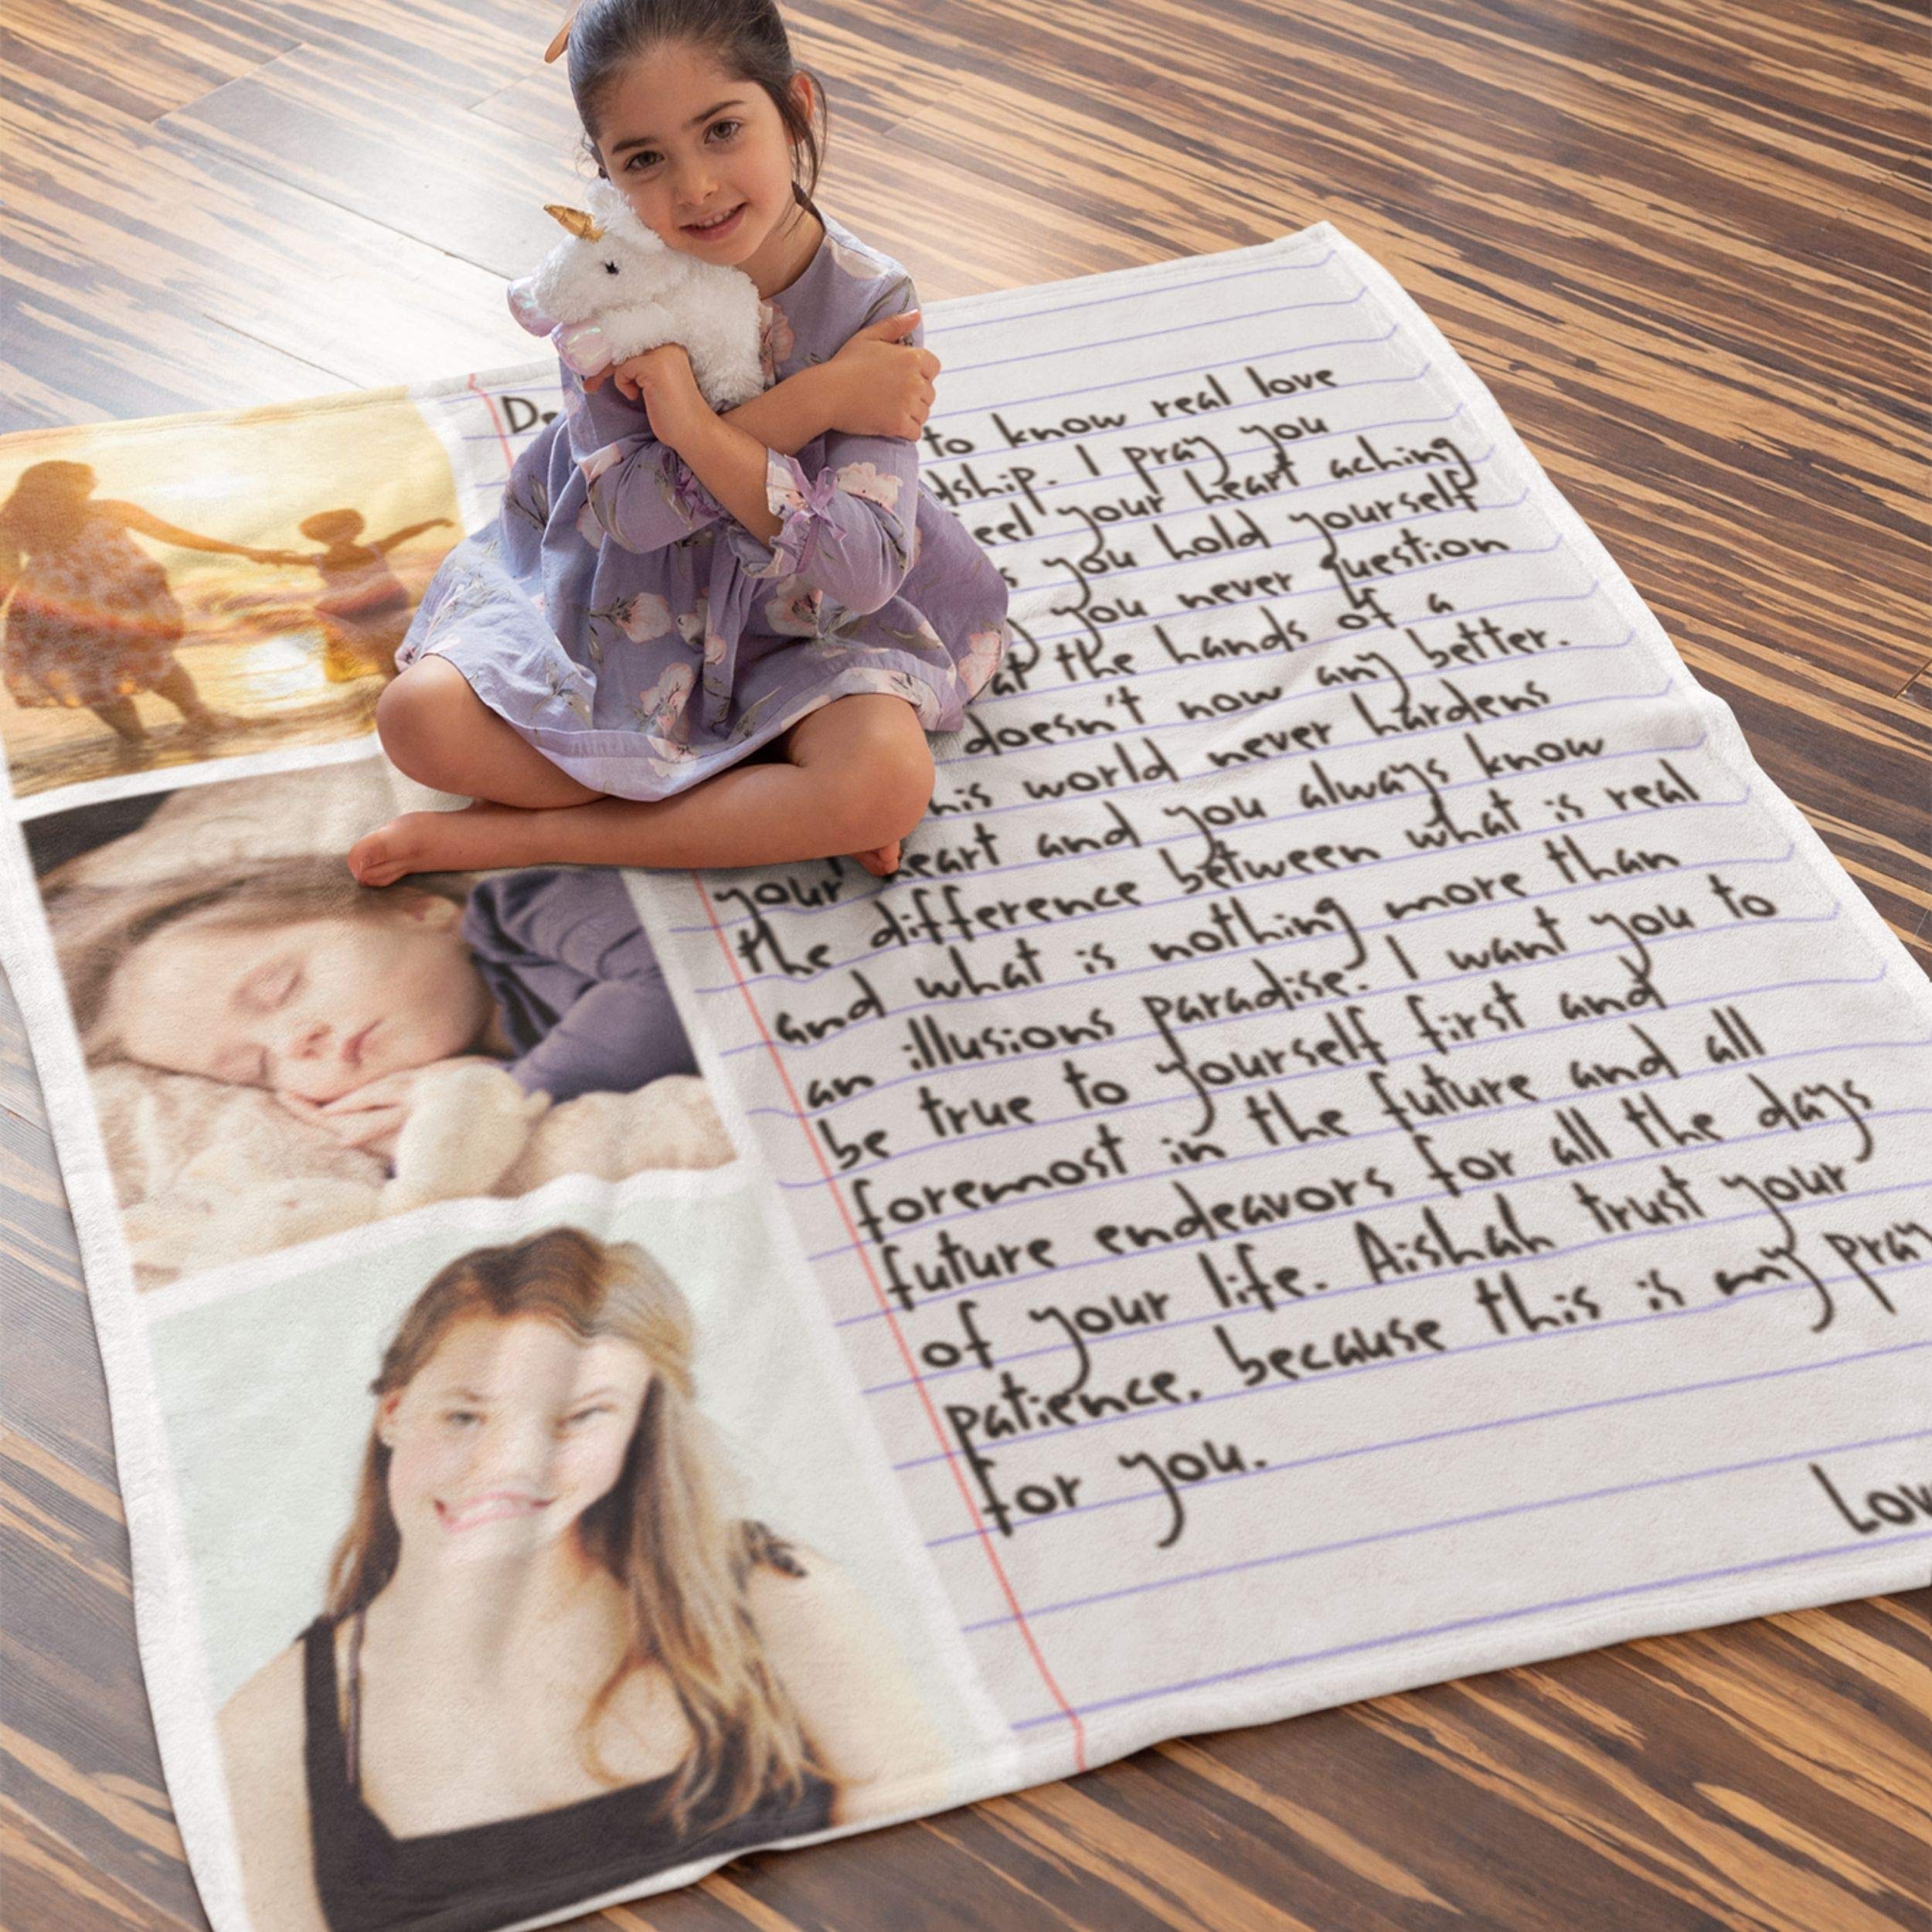 to know real love
I pray you
your heart aching
you hold yourself
you never question
at the hands of a
doesn't now any better.
world never hardens
your heart and you always know
the difference between what is real
and what is nothing more than
an illusions paradise. I want you to
be true to yourself first and
foremost in the future and all
future endeavors for all the days
of your life. Aishah trust your
patience. because this is my pray
for you.